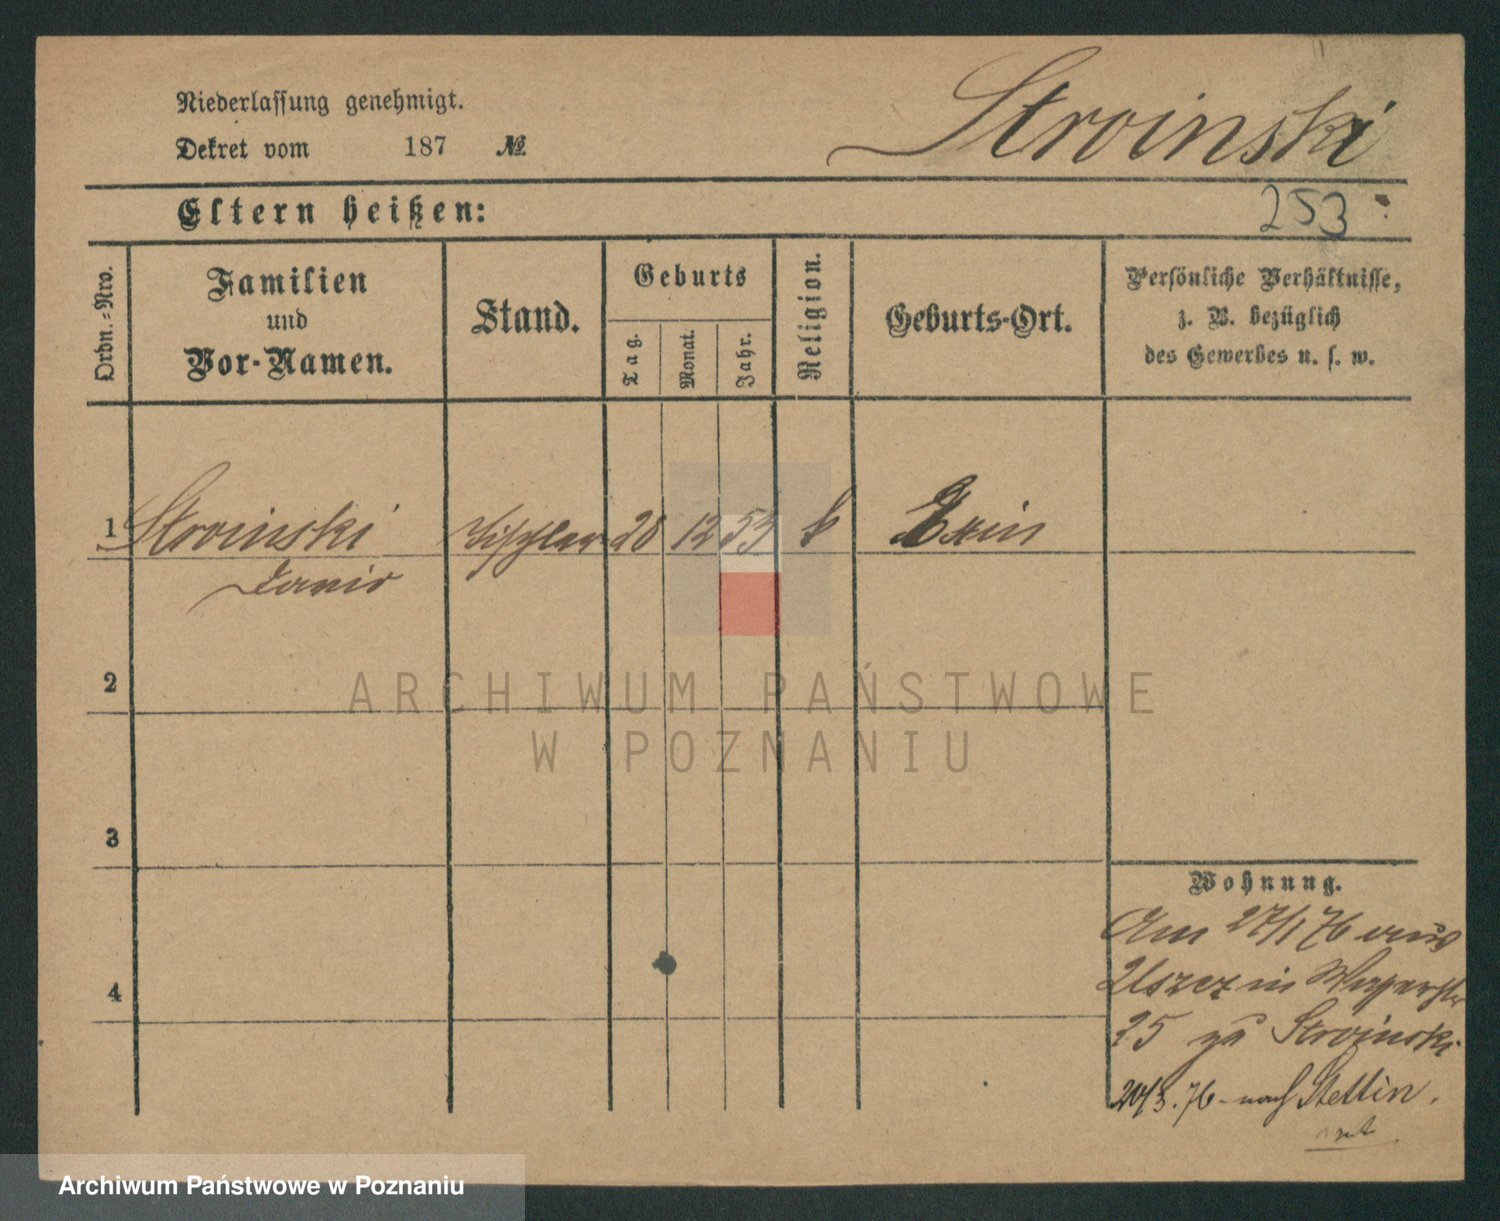 Niederlassung genehmigt.
Stroinski
Dekret vom 187 №
Eltern heißen:
253
Ordn.-Nro.
Familien
und
Vor-Namen.
Stand.
Geburts
Tag.
Monat.
Jahr.
Religion.
Geburts-Ort.
Persönliche Verhältnisse,
z. B. bezüglich
des Gewerbes u. s. w.
1 Stroinski Tischler 20 12 53 k Exin
2
3
4
Wohnung.
Am 27/1 76 aus
in
25 zu Stroinski
20/3. 76 - nach Stettin.
ARCHIWUM PAŃSTWOWE
W POZNANIU
Archiwum Państwowe w Poznaniu